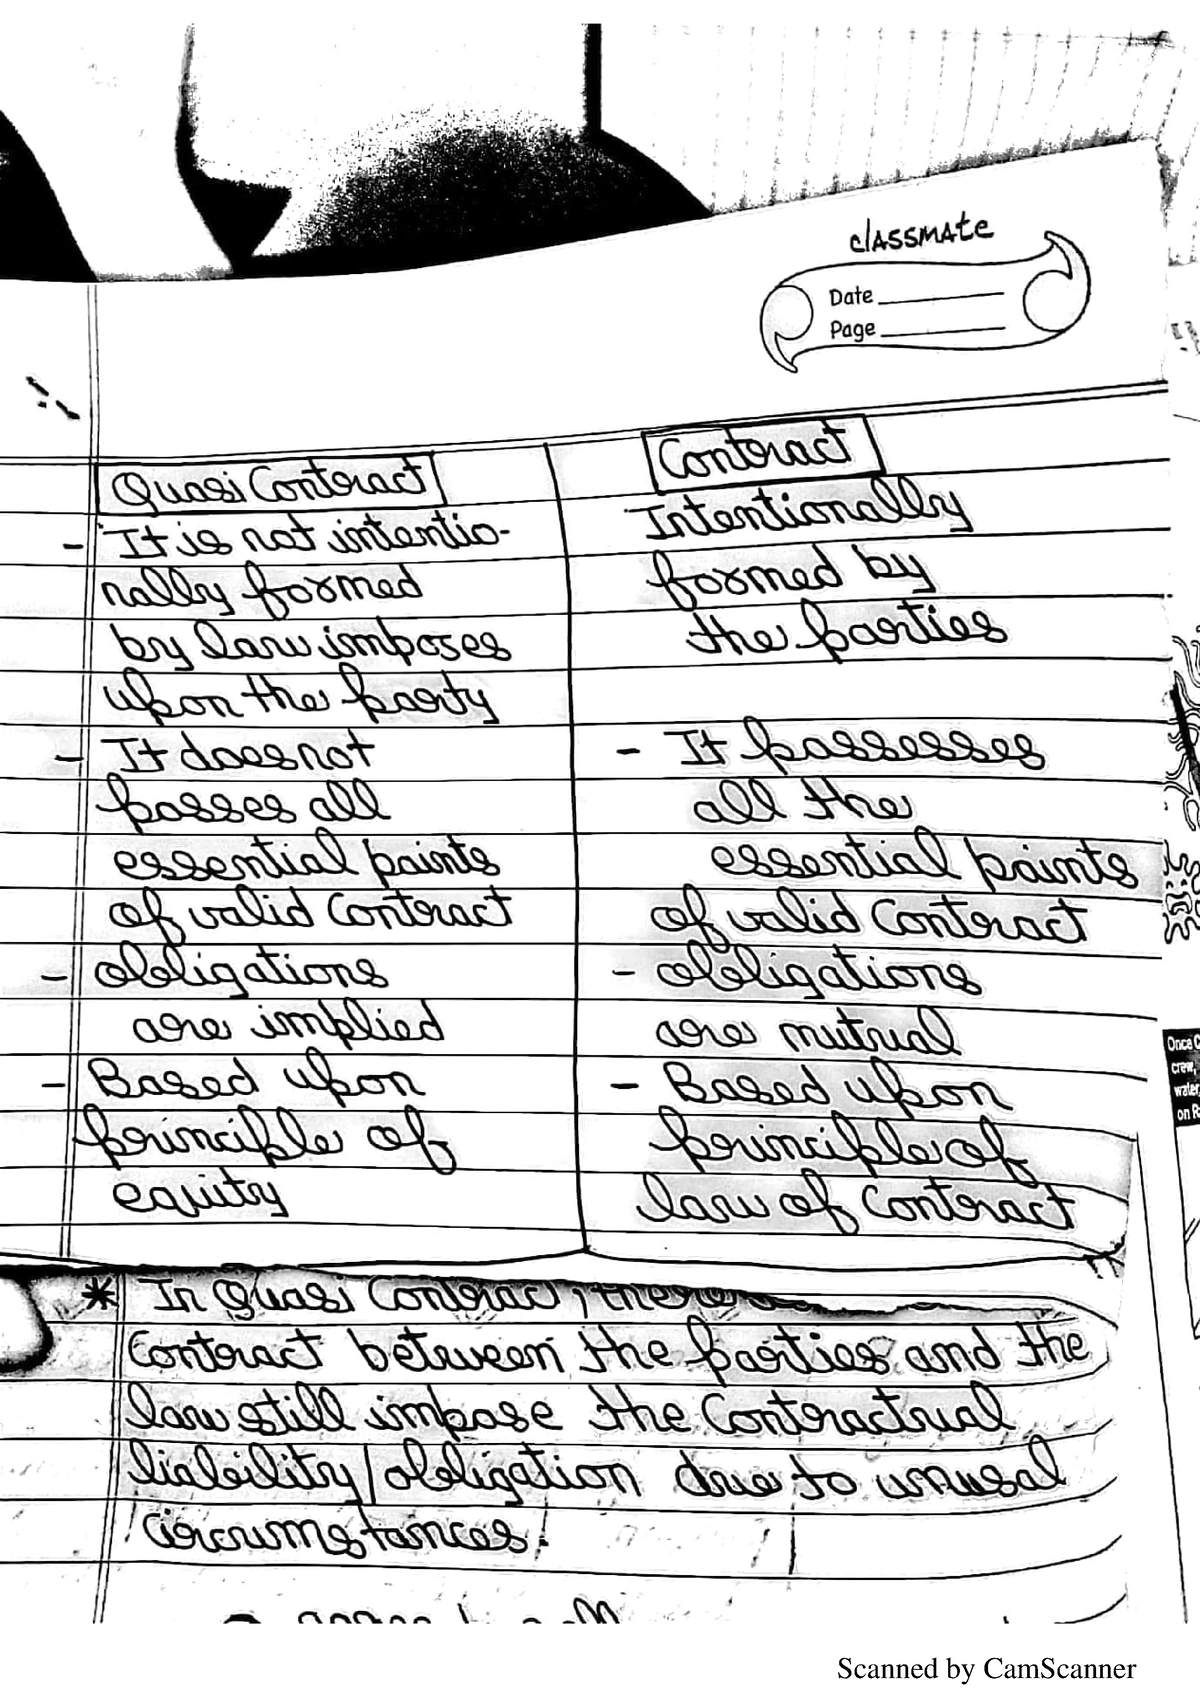 classmate
Date
Page
Quasi Contract
- It is not intentio-
nally formed
by law imposes
upon the party
- It does not
posses all
essential points
of valid Contract
- obligations
are implied
- Based upon
principle of
equity
Contract
Intentionally
formed by
the parties
- It possesses
all the
essential points
of valid Contract
- obligations
are mutual
- Based upon
principle of
law of Contract
* In Quasi Contract, there
Contract between the parties and the
law still impose the Contractual
liability/obligation due to unusal
circumstances.
Once
crew,
water,
on R
Scanned by CamScanner